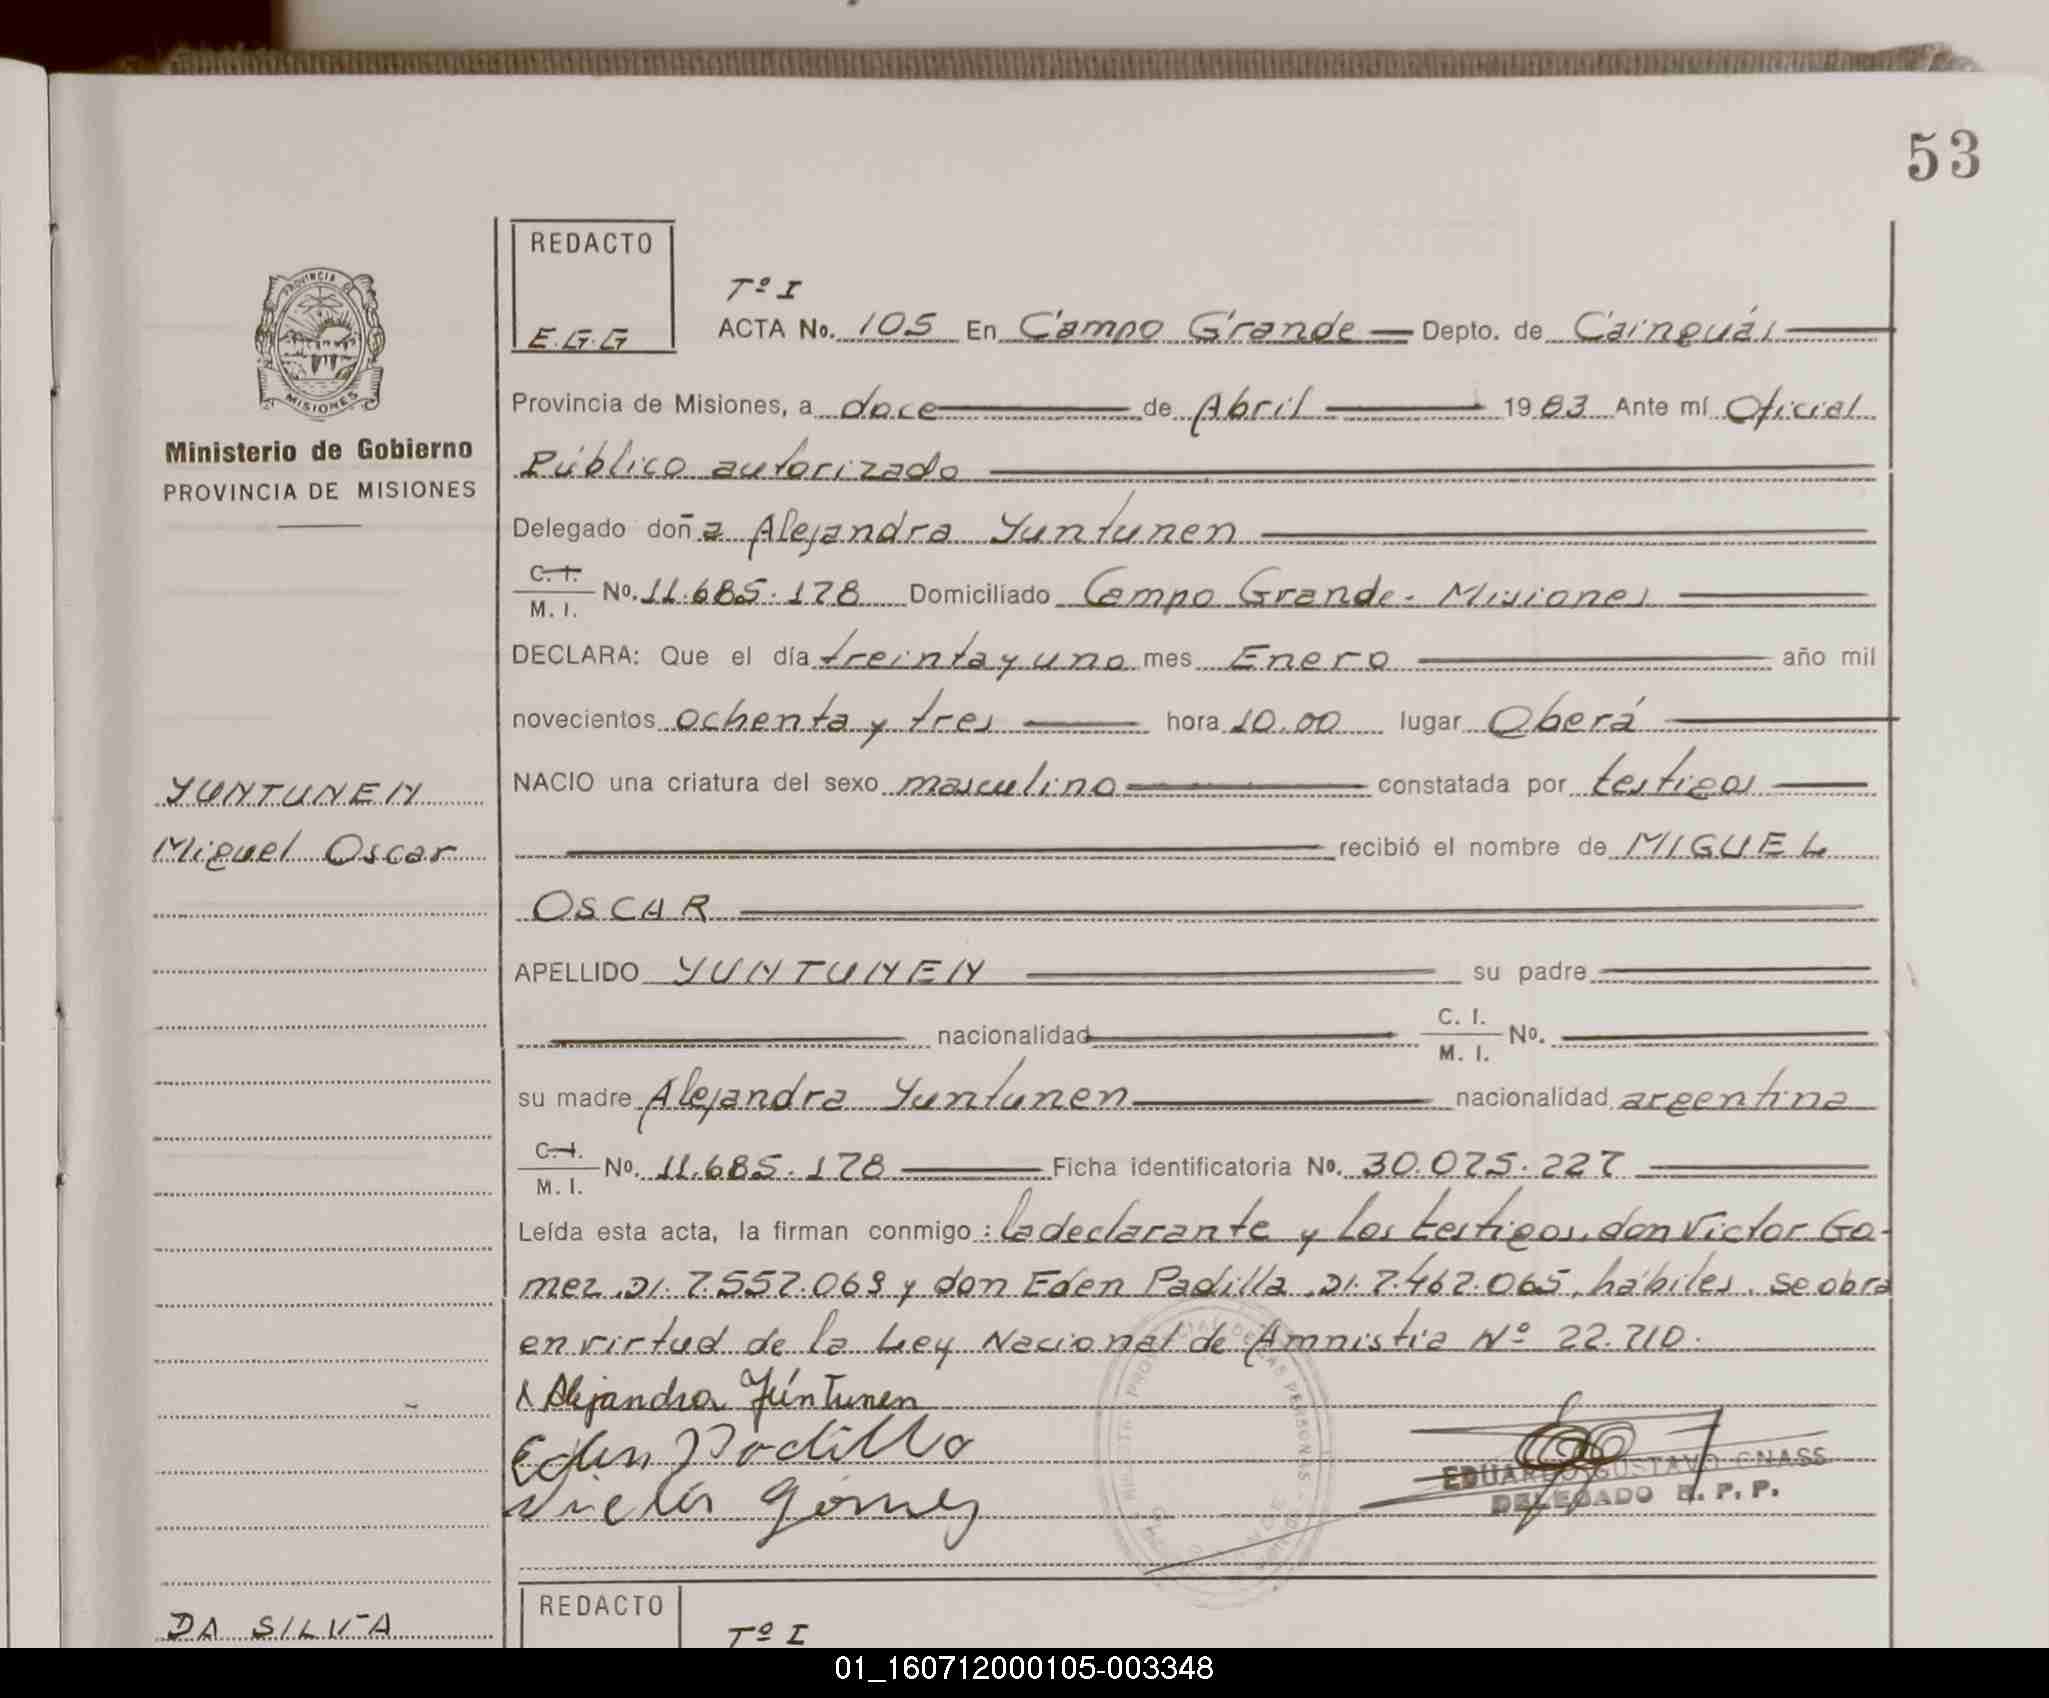 53
REDACTO
E.G.G
Tº I
ACTA No. 105 En Campo Grande Depto. de Cainguás
PROVINCIA
MISIONES
Ministerio de Gobierno
PROVINCIA DE MISIONES
Provincia de Misiones, a doce de Abril 1983 Ante mí Oficial
Público autorizado
Delegado doña Alejandra Yuntunen
C. I.
M. I. No. 11.685.178 Domiciliado Campo Grande - Misiones
DECLARA: Que el día treinta y uno mes Enero año mil
novecientos ochenta y tres hora 10.00 lugar Oberá
YUNTUNEN
Miguel Oscar
NACIO una criatura del sexo masculino constatada por testigos
recibió el nombre de MIGUEL
OSCAR
APELLIDO YUNTUNEN su padre
nacionalidad C. I.
M. I. No.
su madre Alejandra Yuntunen nacionalidad argentina
C. I.
M. I. No. 11.685.178 Ficha identificatoria No. 30.075.227
Leída esta acta, la firman conmigo: la declarante y los testigos, don Victor Go-
mez, DI. 7.557.069 y don Eden Padilla, DI. 7.467.065, hábiles. Se obra
en virtud de la Ley Nacional de Amnistia Nº 22.710.
Alejandra Yúntunen
Eden Padilla
Victor Gómez
EDUARDO GUSTAVO GNASS
DELEGADO R. P. P.
DA SILVA
REDACTO
Tº I
01_160712000105-003348